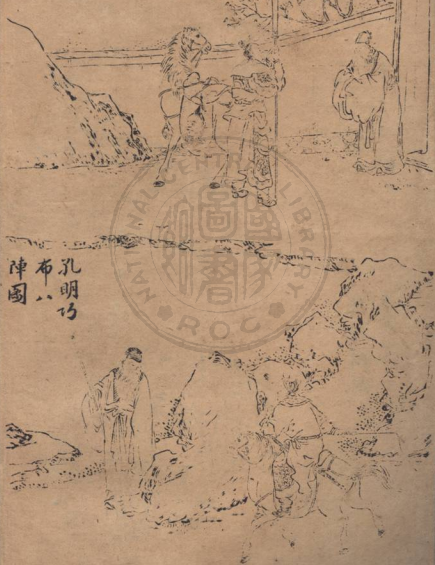 孔明巧
布八
陣圖
NATIONAL CENTRAL LIBRARY
R.O.C.